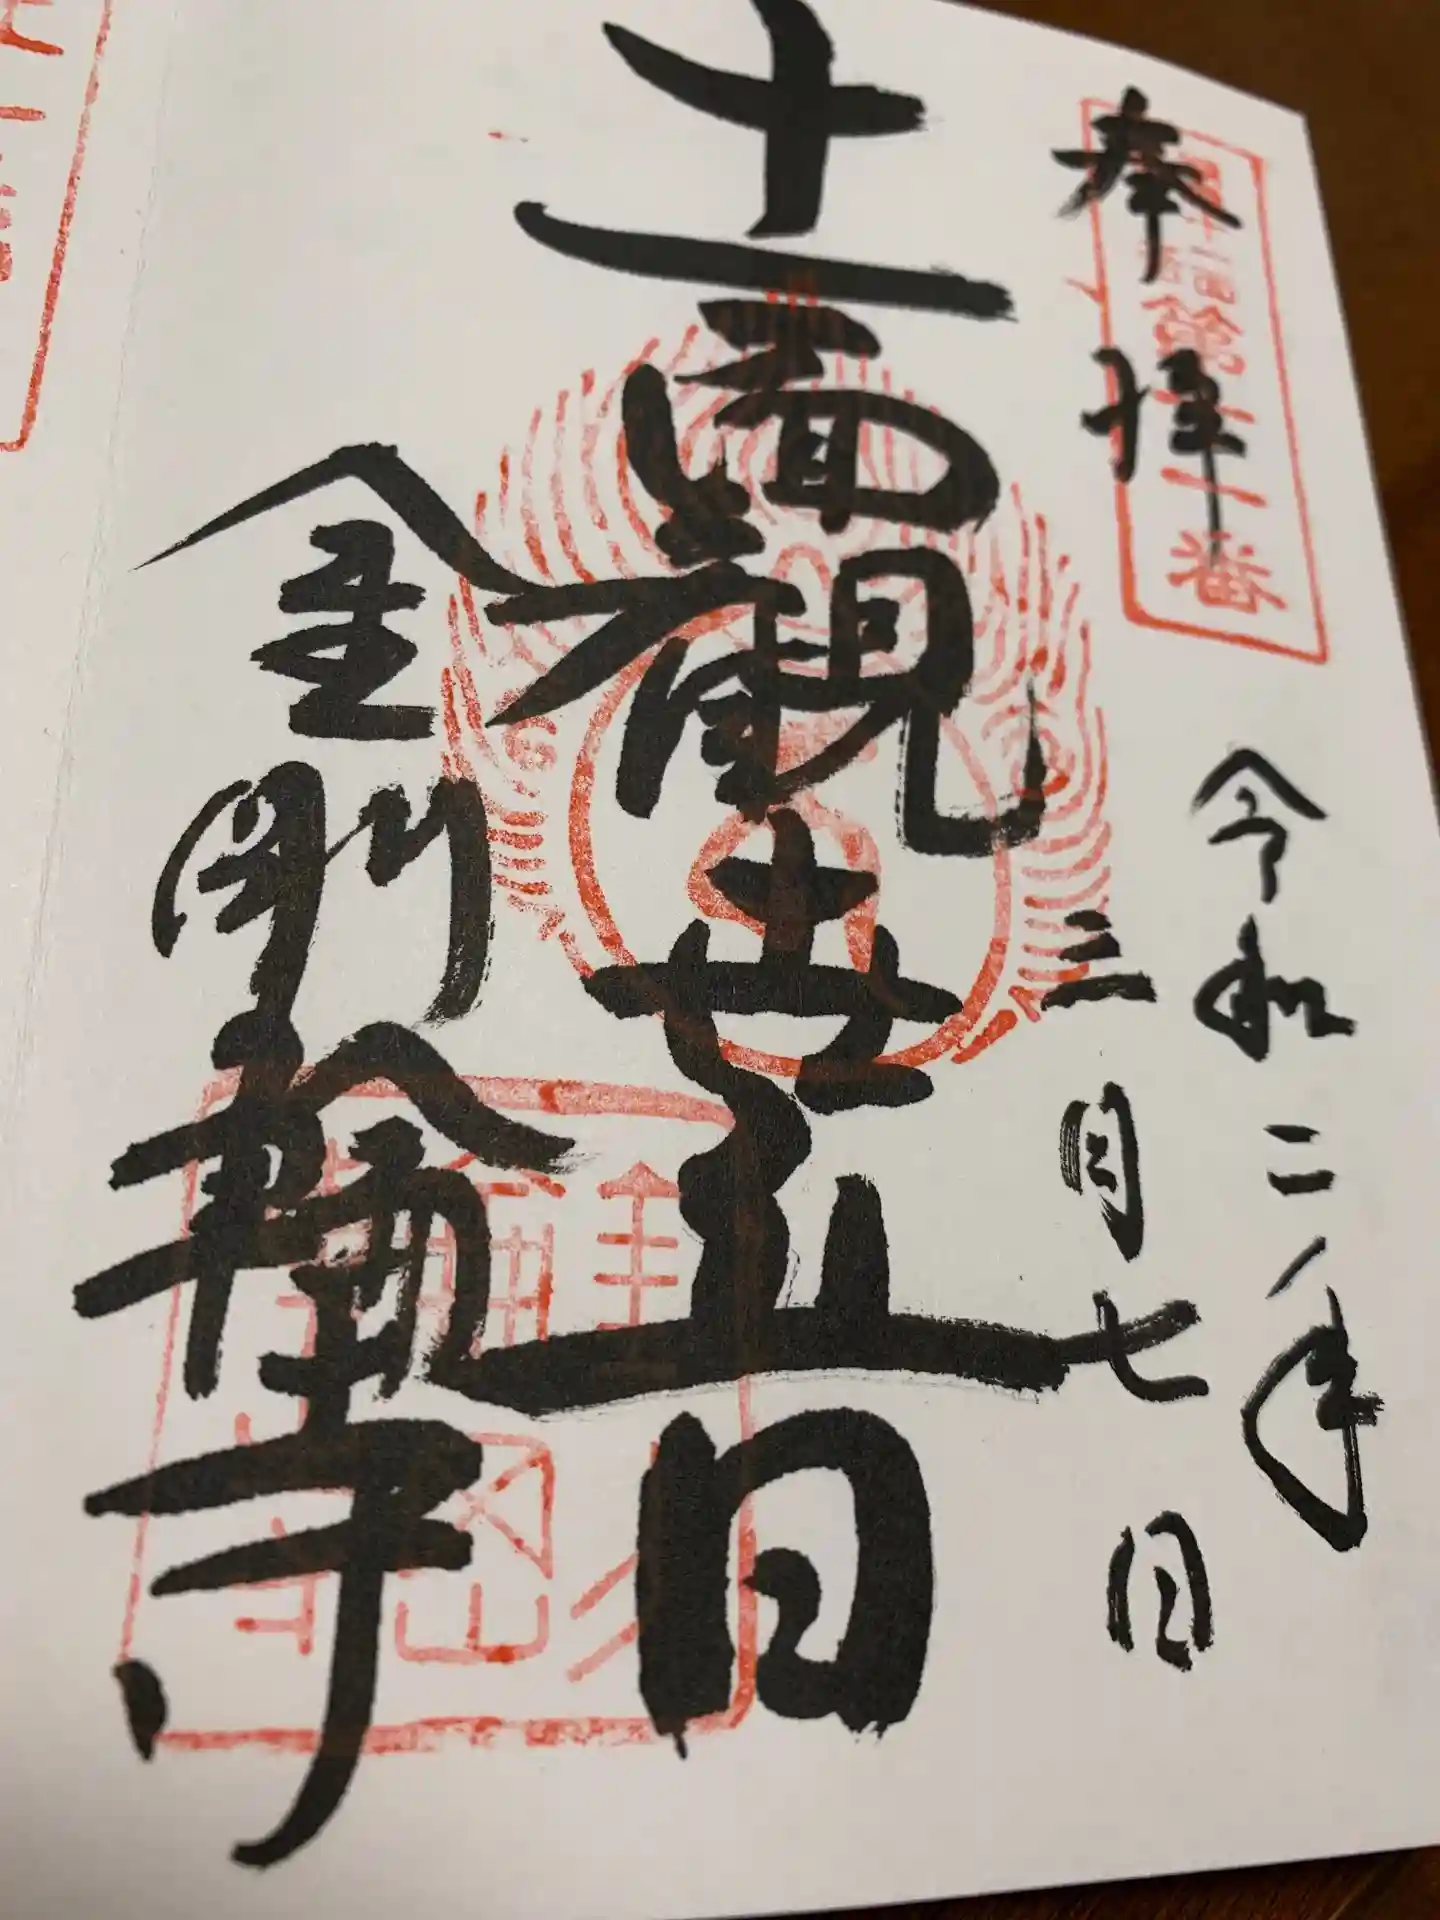 奉拝
令和二年
三月七日
十一面観世音
金剛輪寺
第十一番